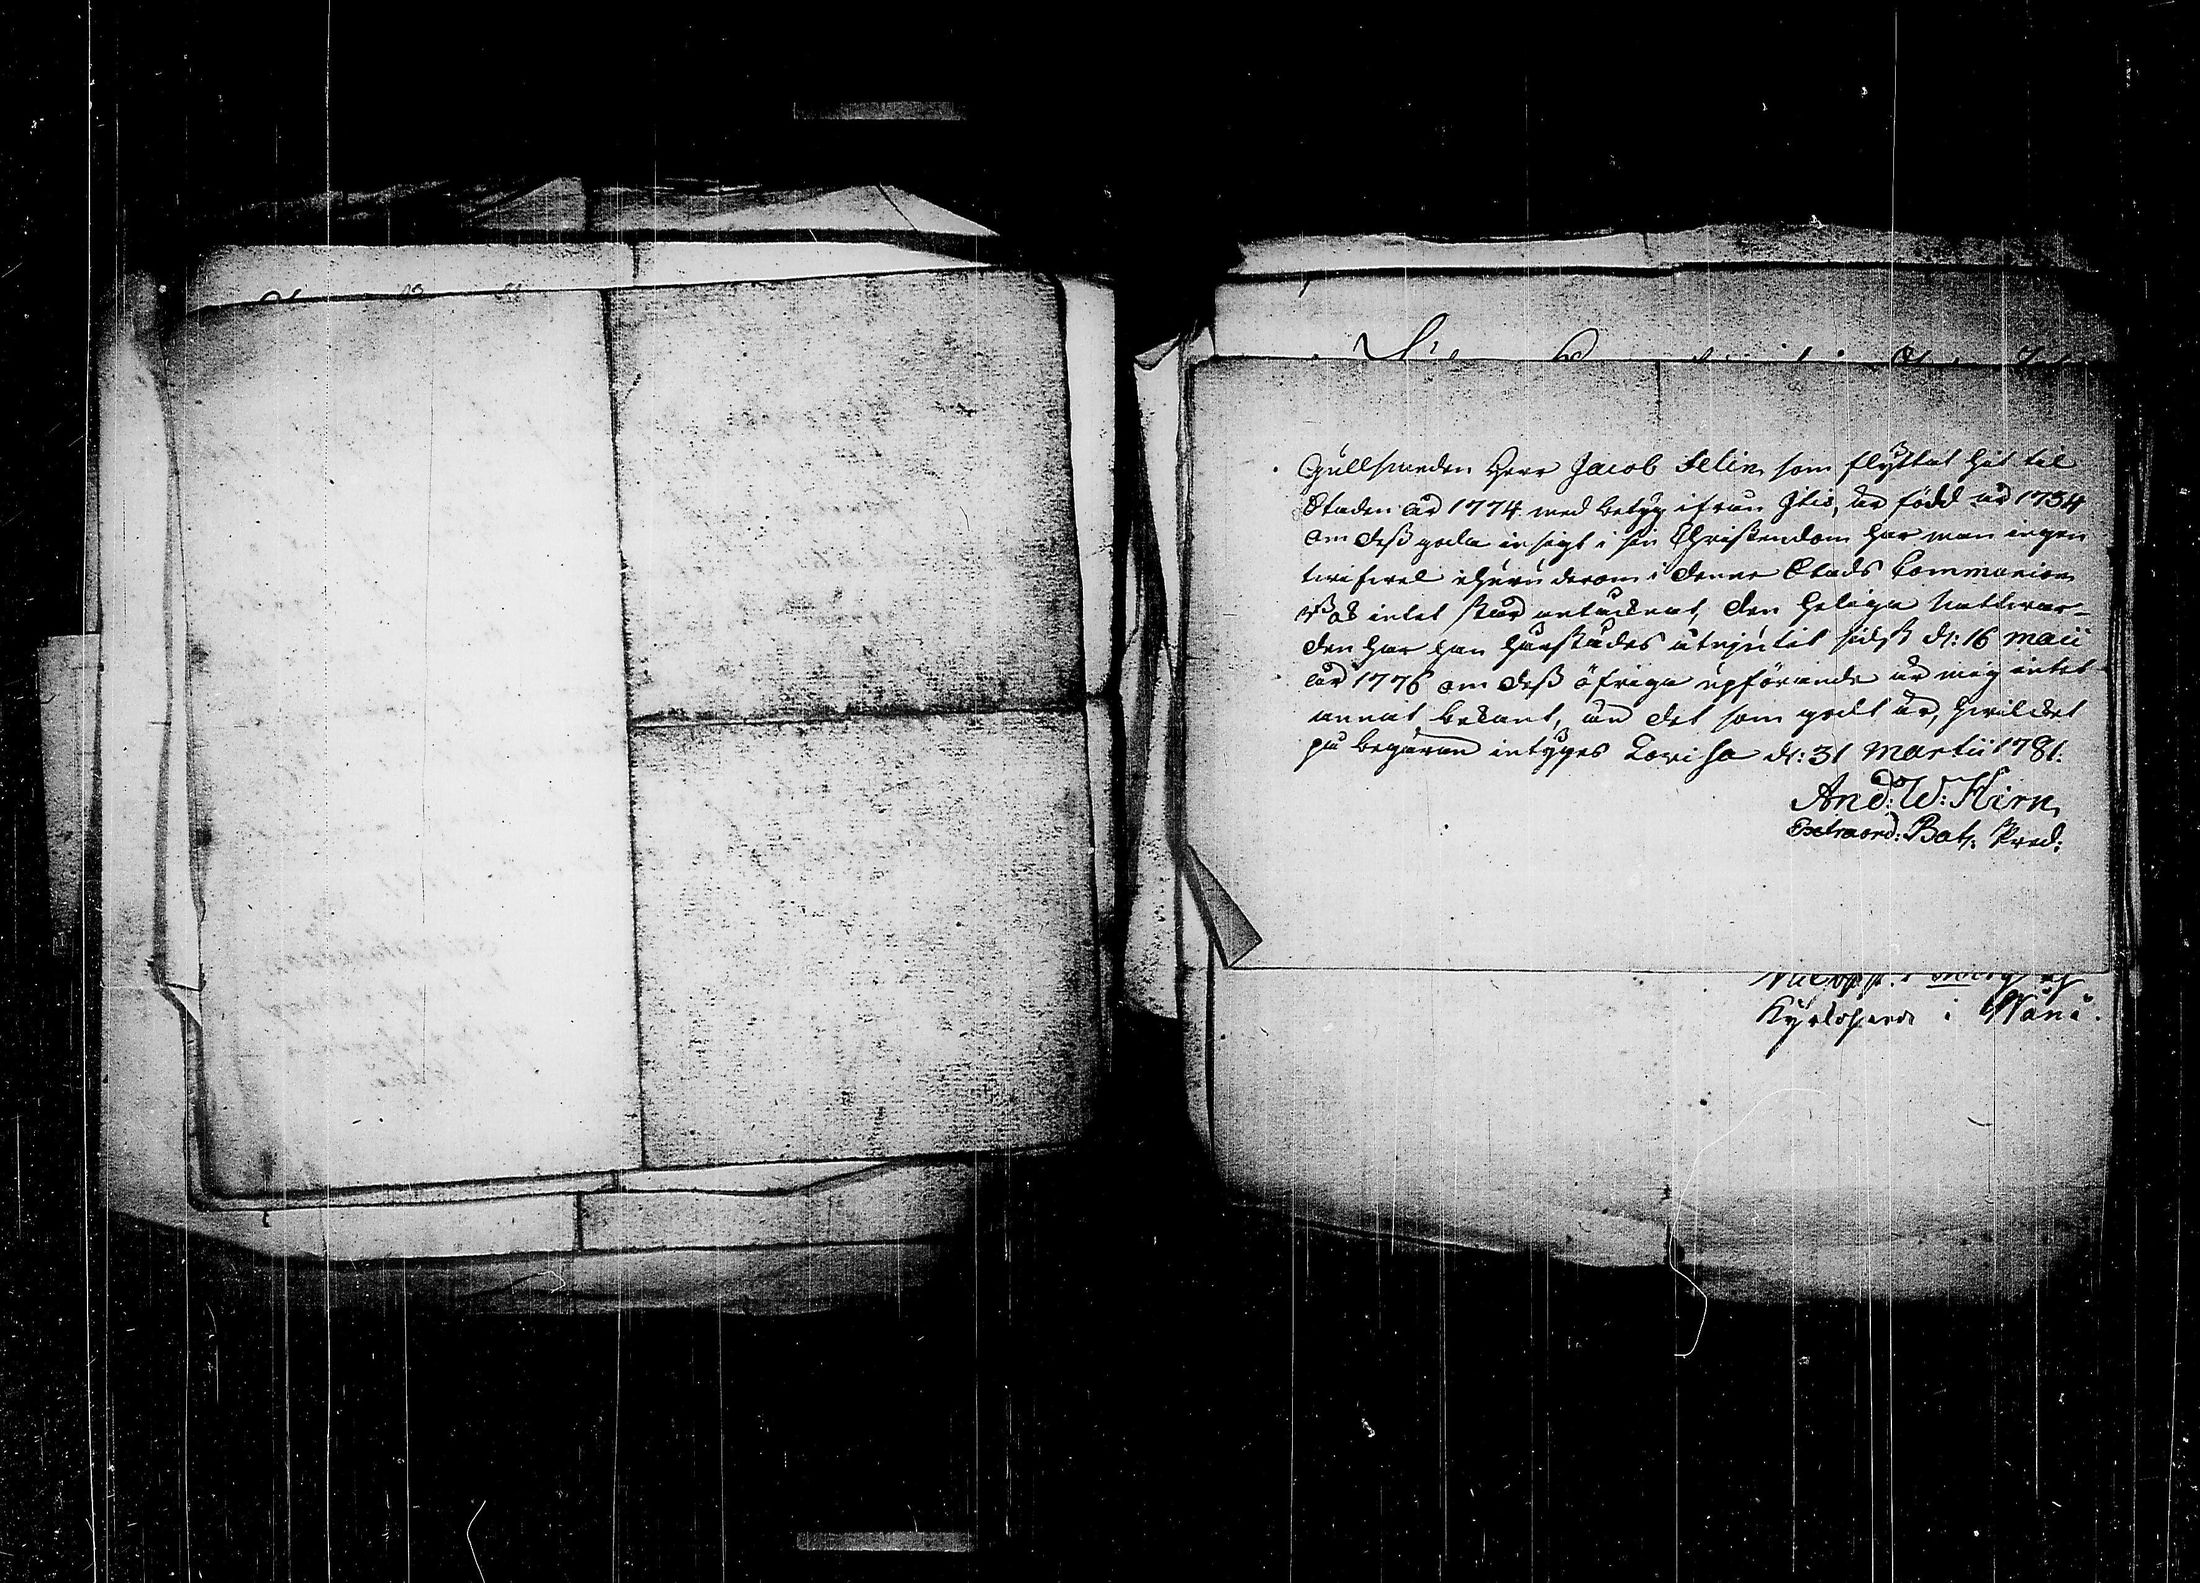 Gullsmeden Herr Jacob Felin som flyttat hit til
Staden år 1774 med betyg ifrån Itis, är född år 1754
om dess goda insigt i sin Christendom har man ingen
twifwel ehuru derom i denne Stads Communion
Bok intet står antecknat, den heliga Nattwar-
den har han härstädes utnjutit sidst d: 16 Maii
år 1776 om dess öfriga upförande är mig intet
annat bekant, än det som godt är, hwilcket
på begäran intyges Lovisa d: 31 Martii 1781.
And: W: Hirn
Extraord: Bat: Pred:
Kyrkoherde i